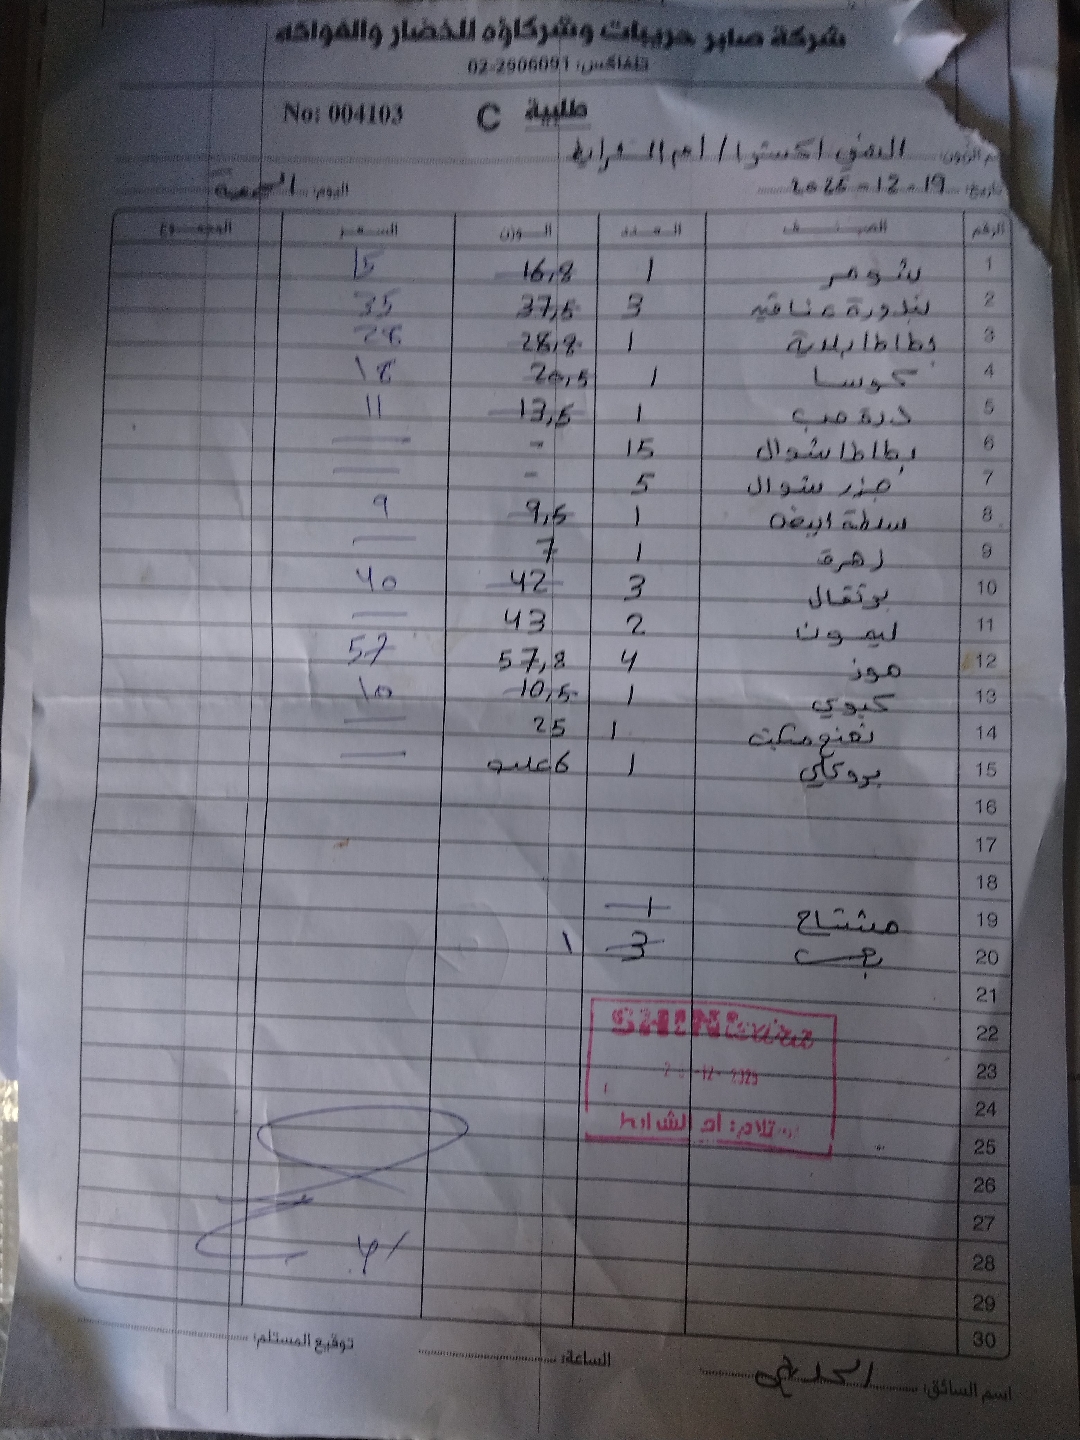 شركة صابر حريبات وشركاؤه للخضار والفواكه
تلفاكس: 02-2906091
طلبية C No: 004103
اكسترا / ام الشرايط
اليوم: الجمعة 2025-12-19
الرقم الصنف العدد الوزن السعر المجموع
1 شومر 1 16,8 15
2 بندورة عناقيد 3 37,5 35
3 بطاطا بلدية 1 28,8 28
4 كوسا 1 20,5 18
5 ذرة حب 1 13,5 11
6 بطاطا شوال 15 -
7 جزر شوال 5 -
8 سلطة 1 9,5 9
9 زهرة 1 7
10 برتقال 3 42 40
11 ليمون 2 43
12 موز 4 57,8 57
13 كيوي 1 10,5 10
14 نعنع 1 25
15 بروكلي 1 6 علب
16
17
18
19 مشتاح 1
20 3 1
21
22 SHINI
23 12-2025
24 ام الشرايط
25
26
27
28
29
30
اسم السائق: الساعة: توقيع المستلم: